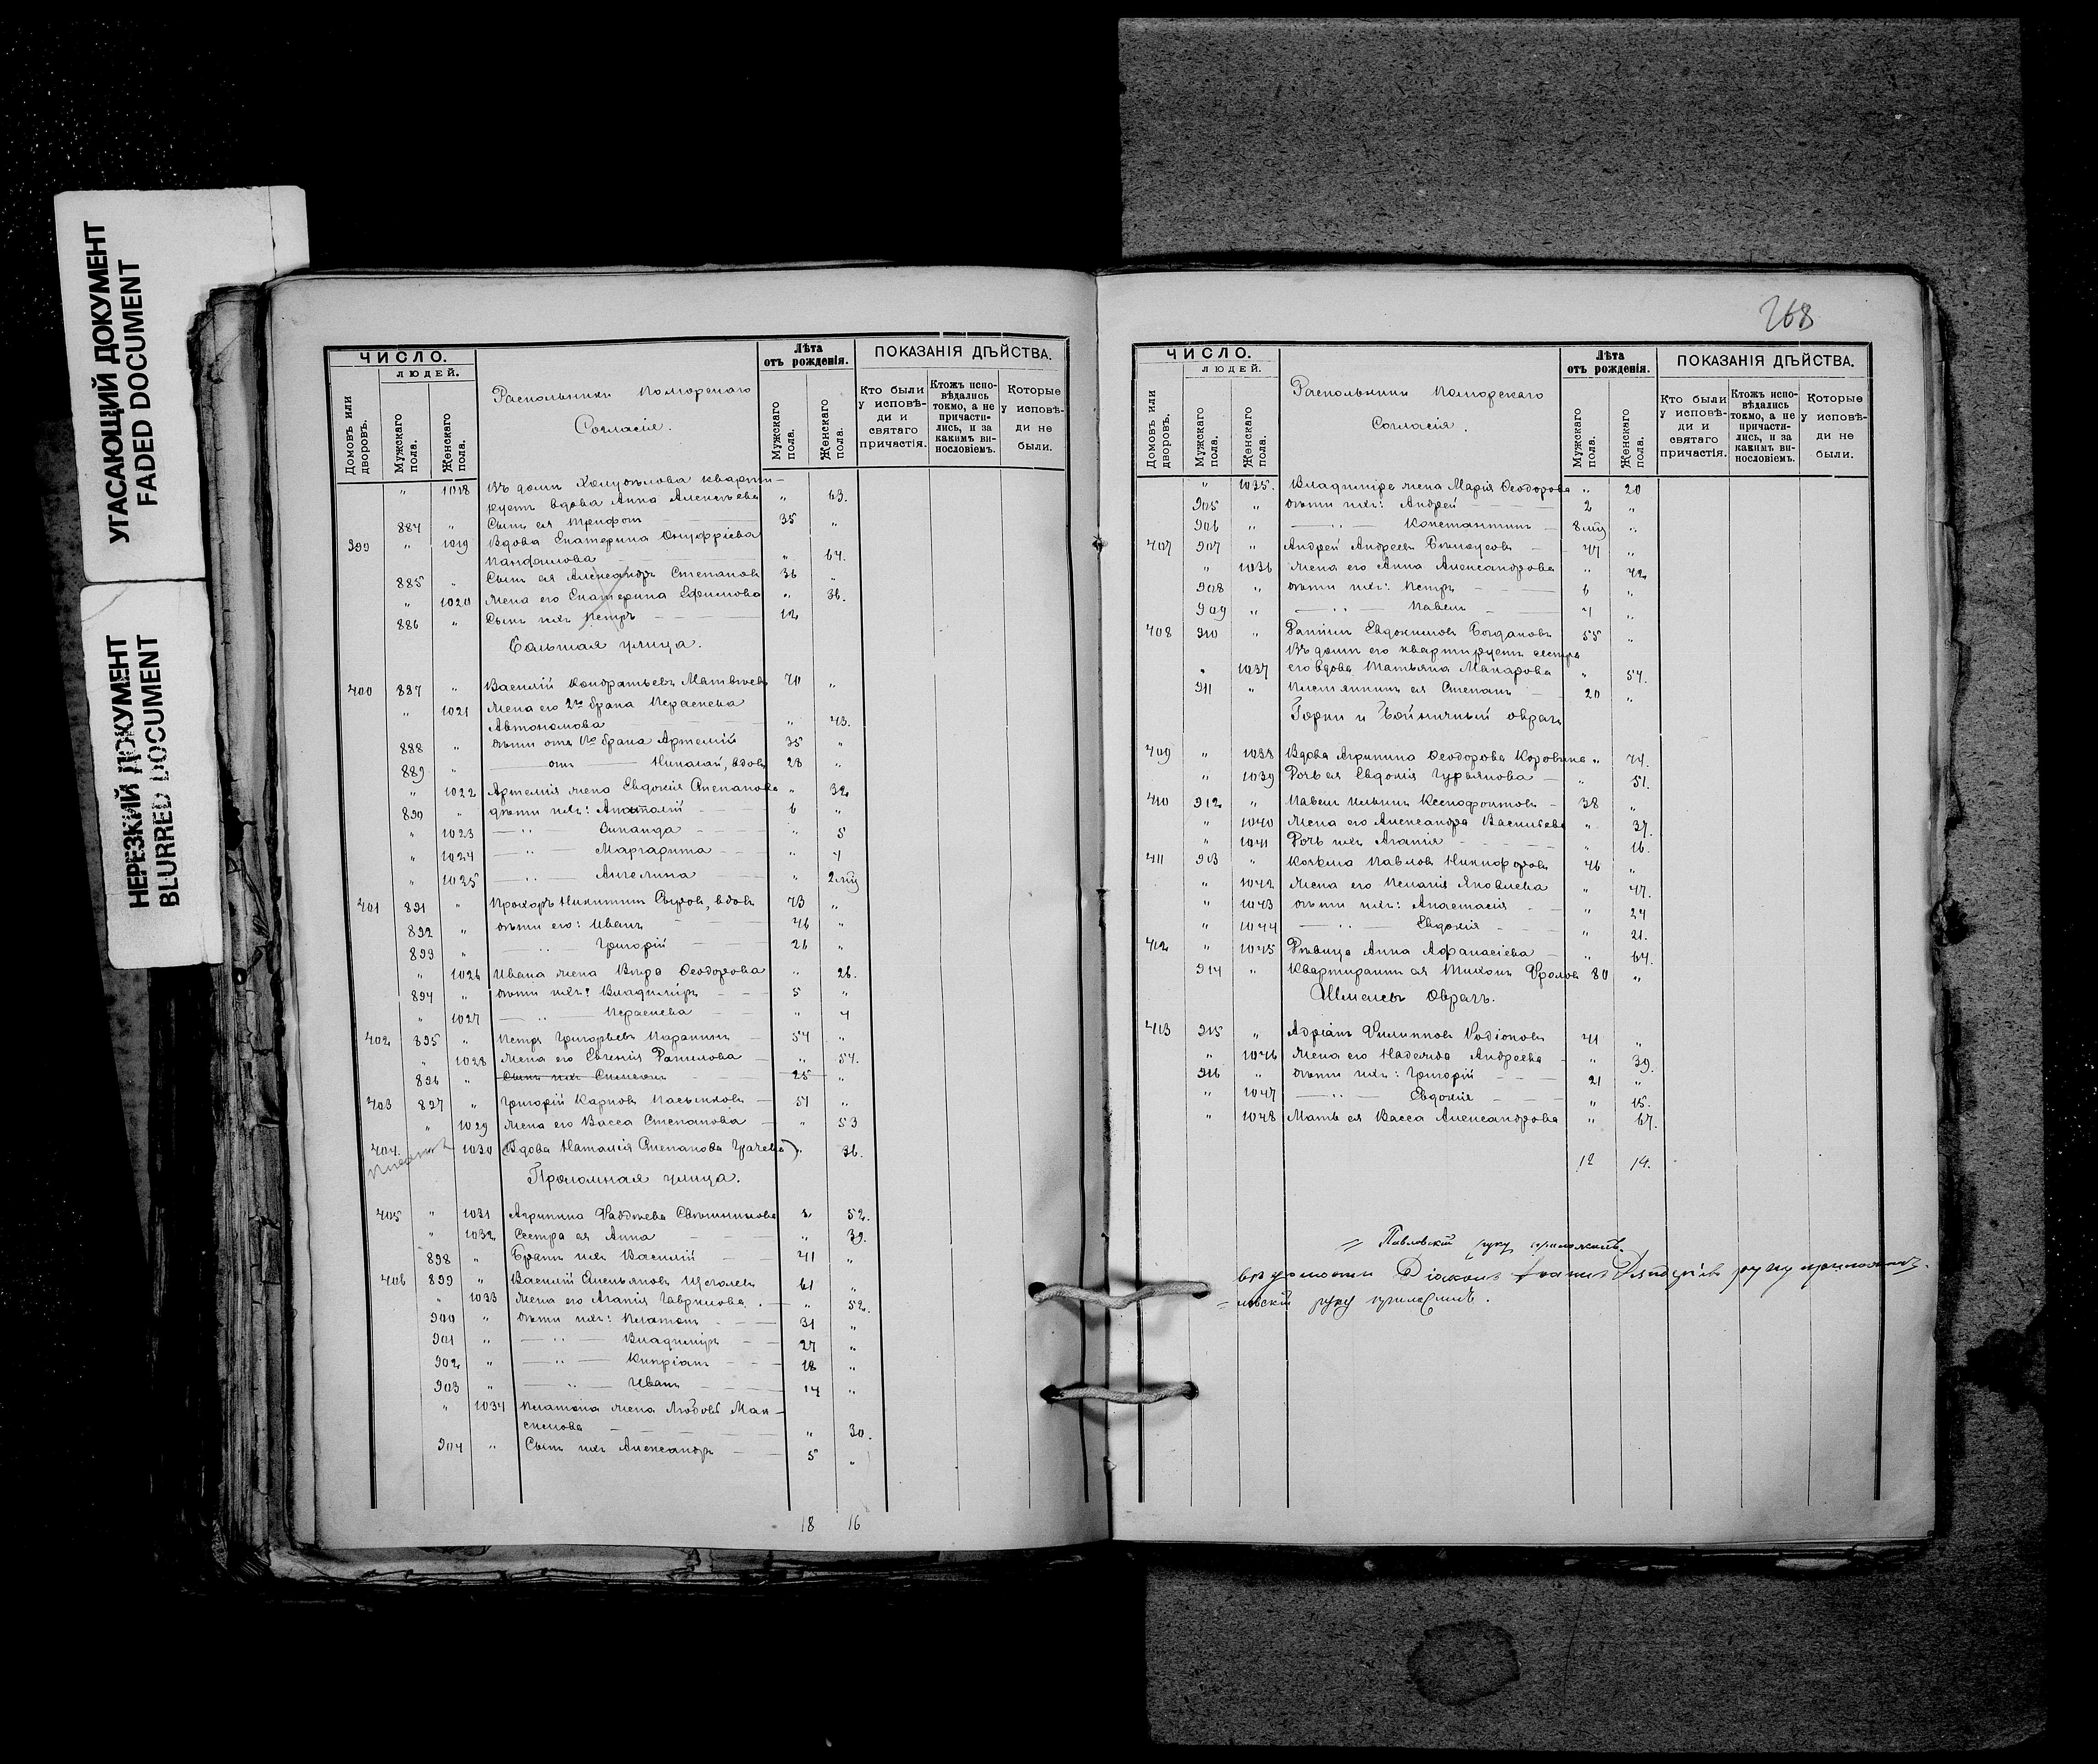 УГАСАЮЩИЙ ДОКУМЕНТ
FADED DOCUMENT
НЕРЕЗКИЙ ДОКУМЕНТ
BLURRED DOCUMENT
ЧИСЛО.
ЛЮДЕЙ.
Домовъ или дворовъ.
Мужскаго пола.
Женскаго пола.
Раскольники Поморскаго
Согласія.
Лѣта
отъ рожденія.
Мужскаго пола.
Женскаго пола.
ПОКАЗАНІЯ ДѢЙСТВА.
Кто были у исповѣ- ди и святаго причастія.
Ктожъ испо- вѣдались токмо, а не причасти- лись, и за какимъ ви- нословіемъ.
Которые у исповѣ- ди не были.
" 1018 Въ домѣ кварти-
руетъ вдова Анна Алексѣева " 63.
884 " Сынъ ея Трифонъ 35 "
399 " 1019 Вдова Екатерина Онуфріева
Панфилова " 64.
885 " Сынъ ея Александръ Степановъ 36 "
" 1020 Жена его Екатерина Ефимова " 36.
886 " Сынъ ихъ Петръ 12
Большая улица.
400 887 " Василій Кондратьевъ Матвѣевъ 70 "
" 1021 Жена его 2го брака Параскева
Автономова " 43.
888 " Дѣти отъ 1го брака Артемій 35 "
889 " — отъ — Николай, вдовъ 28 "
" 1022 Артемія жена Евдокія Степанова " 32
890 " дѣти ихъ: Анатолій 6 "
" 1023 — " — " 5
" 1024 — " — Маргарита " 4
" 1025 — " — Ангелина " 2 мц
401 891 " Прохоръ Никитинъ вдовъ 73 "
892 " дѣти его: Иванъ 46 "
893 " " Григорій 26 "
" 1026 Ивана жена Вѣра Ѳеодорова " 26.
894 " дѣти ихъ: Владиміръ 5 "
" 1027 — " — Параскева " 4
402 895 " Петръ Григорьевъ 54 "
" 1028 Жена его Евгенія " 54.
896 " Сынъ ихъ Симеонъ 25 "
403 897 " Григорій Карповъ 51 "
" 1029 Жена его Васса Степанова " 53
404. 1030 (Вдова Наталія Степанова Грачева). 36.
Проломная улица.
405 " 1031 Агрипина Ѳаддѣева " 52.
" 1032 Сестра ея Анна " 39.
898 " Братъ ихъ Василій 41 "
406 899 " Василій Емельяновъ Щеголевъ 61 "
" 1033 Жена его Агапія Гаврилова. " 52.
900 " дѣти ихъ: Платонъ 31 "
901 " — " — Владиміръ 27 "
902 " — " — Кипріанъ 18 "
903 " — " — Иванъ 14 "
" 1034 Платона жена Любовь Мак-
симова " 30.
904 " Сынъ ихъ Александръ 5 "
18 16
268
ЧИСЛО.
ЛЮДЕЙ.
Домовъ или дворовъ.
Мужскаго пола.
Женскаго пола.
Раскольники Поморскаго
Согласія.
Лѣта
отъ рожденія.
Мужскаго пола.
Женскаго пола.
ПОКАЗАНІЯ ДѢЙСТВА.
Кто были у исповѣ- ди и святаго причастія.
Ктожъ испо- вѣдались токмо, а не причасти- лись, и за какимъ ви- нословіемъ.
Которые у исповѣ- ди не были.
" 1035. Владиміра жена Марія Ѳеодорова " 20
905 " дѣти ихъ: Андрей 2 "
906 " — " — Константинъ 8 мц "
407 907 " Андрей Андреевъ Бѣлоусовъ 47 "
" 1036 Жена его Анна Александрова " 42
908 " дѣти ихъ: Петръ 6 "
909 " — " — Павелъ 4 "
408 910 " Евдокимовъ Богдановъ 55 "
Въ домѣ его квартируетъ сестра
" 1037 его вдова Татьяна Макарова " 54.
911 " Племянникъ ея Степанъ 20 "
Горки и оврагъ
409 " 1038 Вдова Агрипина Ѳеодорова Коровина " 74.
" 1039 Дочь ея Евдокія Гурьянова " 51.
410 912 " Павелъ Ильинъ Ксенофонтовъ 38 "
" 1040 Жена его Александра Васильева " 37.
" 1041 Дочь ихъ Агапія " 16.
411 913 " Козьма Павловъ Никифоровъ 46 "
" 1042 Жена его Пелагія Яковлева " 47.
" 1043 дѣти ихъ: Анастасія " 24
" 1044 — " — Евдокія " 21.
412 " 1045 Дѣвица Анна Афанасіева " 64.
914 " Квартирантъ ея Тихонъ Фроловъ 80 "
Шмелевъ Оврагъ.
413 915 " Адріанъ Филипповъ Родіоновъ 41 "
" 1046 Жена его Надежда Андреева " 39.
916 " дѣти ихъ: Григорій 21 "
" 1047 — " — Евдокія " 15.
" 1048 Мать ея Васса Александрова " 67.
12 14.
= Павловскій руку приложилъ.
Діаконъ Іоаннъ руку приложилъ.
= новскій руку приложилъ.